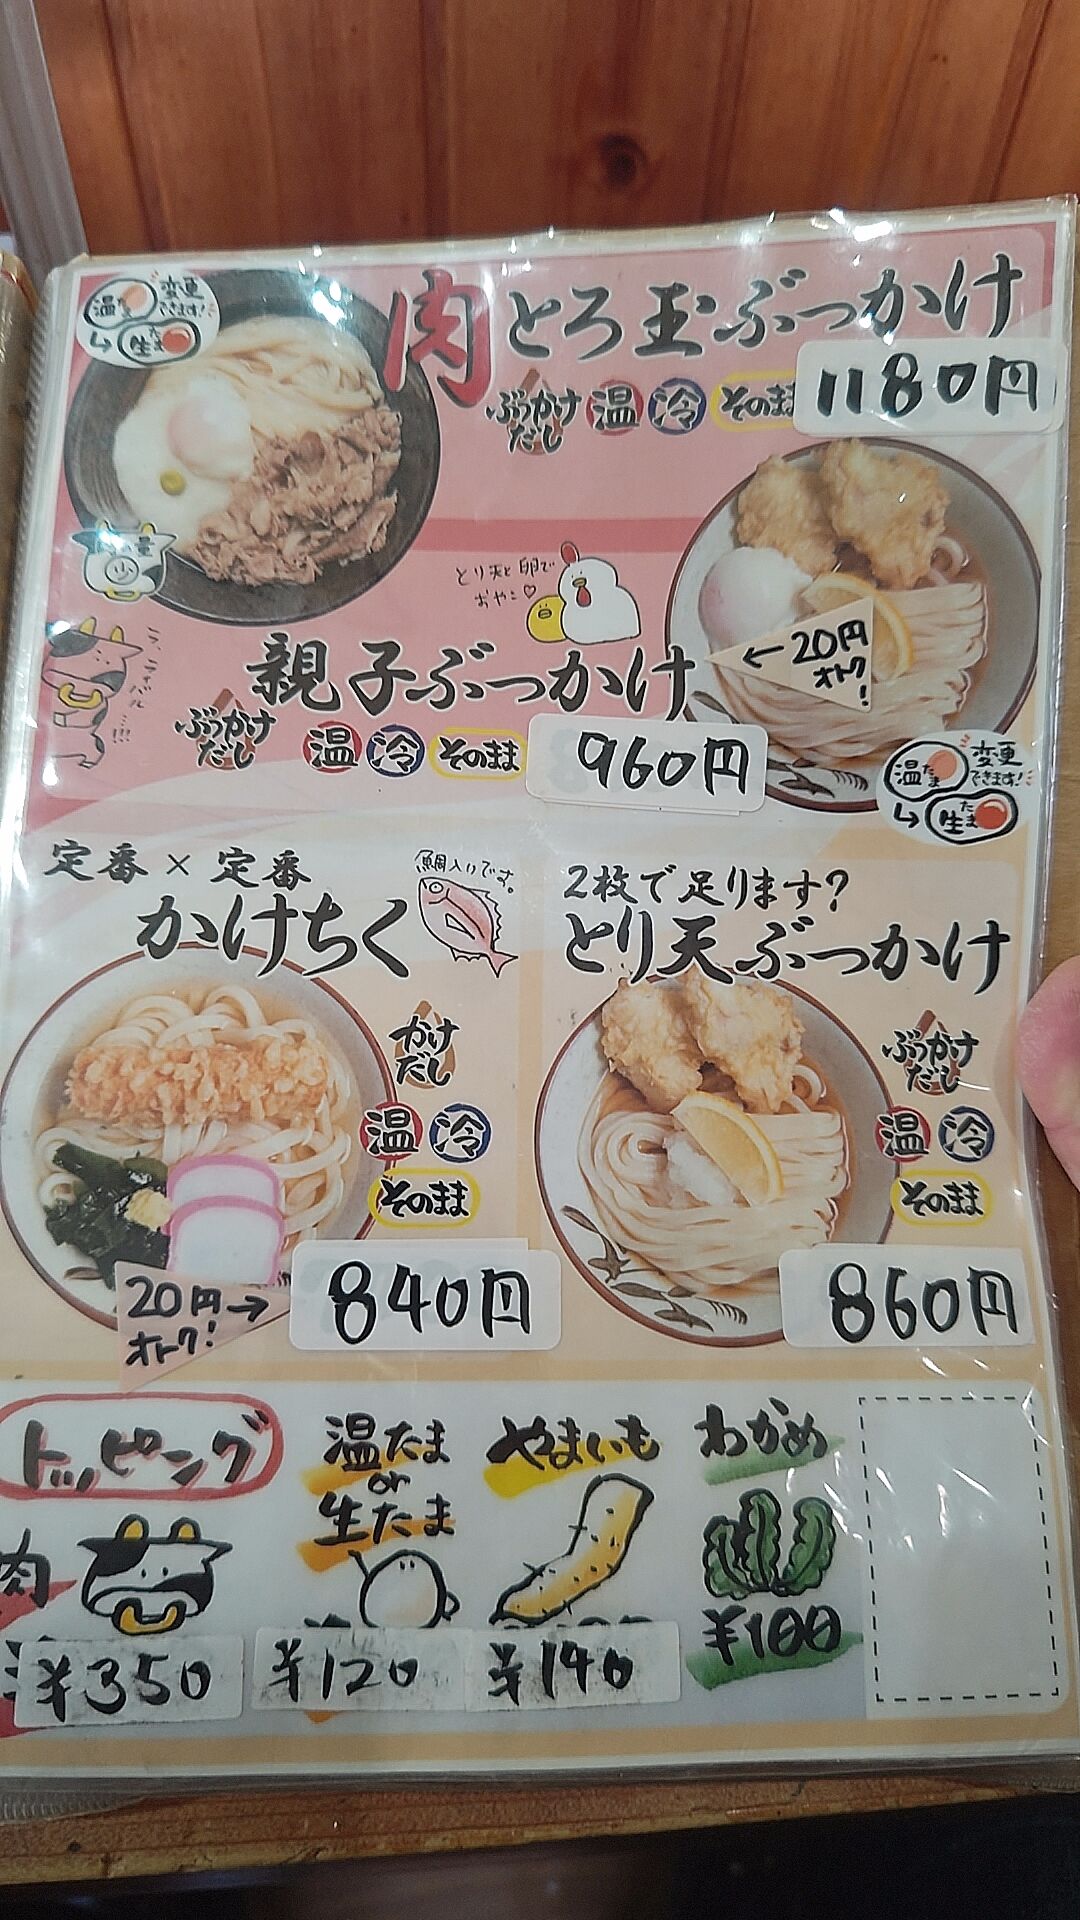 温たま 変更できます!
→生たま
肉とろ玉ぶっかけ
ぶっかけだし 温 冷 そのまま
1180円
とり天と卵で
おやこ♡
←20円
オトク!
親子ぶっかけ
ぶっかけだし 温 冷 そのまま
960円
温たま 変更できます!
→生たま
定番×定番
かけちく
鯛入りです。
かけだし
温 冷
そのまま
20円→
オトク!
840円
2枚で足ります?
とり天ぶっかけ
ぶっかけだし
温 冷
そのまま
860円
トッピング
肉
¥350
温たま
or
生たま
¥120
やまいも
¥140
わかめ
¥100